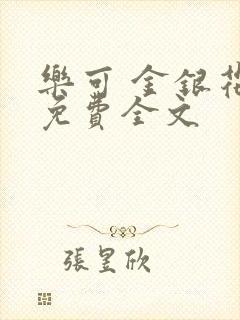 樂可 金銀花
免費全文
張昱欣